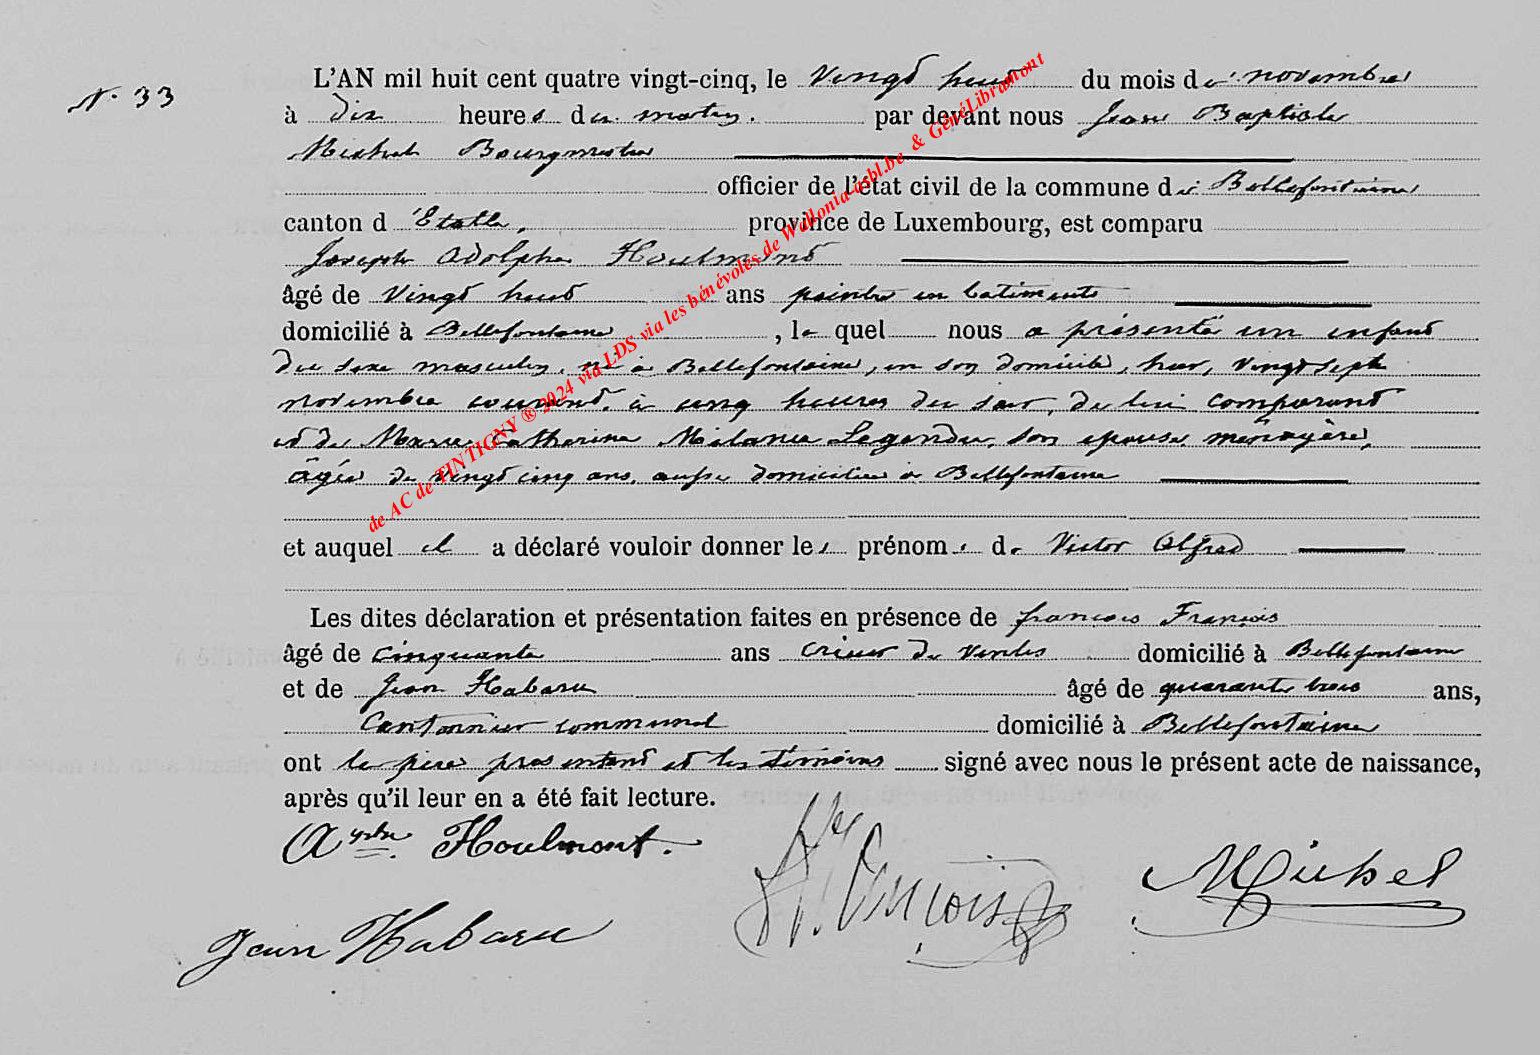 N. 33
L'AN mil huit cent quatre vingt-cinq, le Vingt huit du mois de novembre
à dix heures du matin. par devant nous Jean Baptiste
Michel Bourgmestre
officier de l'état civil de la commune de Bellefontaine
canton d'Etalle, province de Luxembourg, est comparu
Joseph Adolphe Houlmont
âgé de Vingt huit ans peintre en batiments
domicilié à Bellefontaine, le quel nous a présenté un enfant
du sexe masculin, né à Bellefontaine, en son domicile, hier, vingt sept
novembre courant, à cinq heures du soir, de lui comparant
et de Marie Catherine Mélanie Legendre, son épouse ménagère,
âgée de vingt cinq ans, aussi domiciliée à Bellefontaine
et auquel il a déclaré vouloir donner les prénoms de Victor Alfred
Les dites déclaration et présentation faites en présence de francois François
âgé de cinquante ans crieur de ventes domicilié à Bellefontaine
et de Jean Habaru âgé de quarante trois ans,
Cantonnier communal domicilié à Bellefontaine
ont le père présentant et les témoins signé avec nous le présent acte de naissance,
après qu'il leur en a été fait lecture.
Houlmont.
Jean Habaru
Michel
de AC de TINTIGNY ® 2024 via LDS via les bénévoles de Wallonia-asbl.be & GénéLibramont